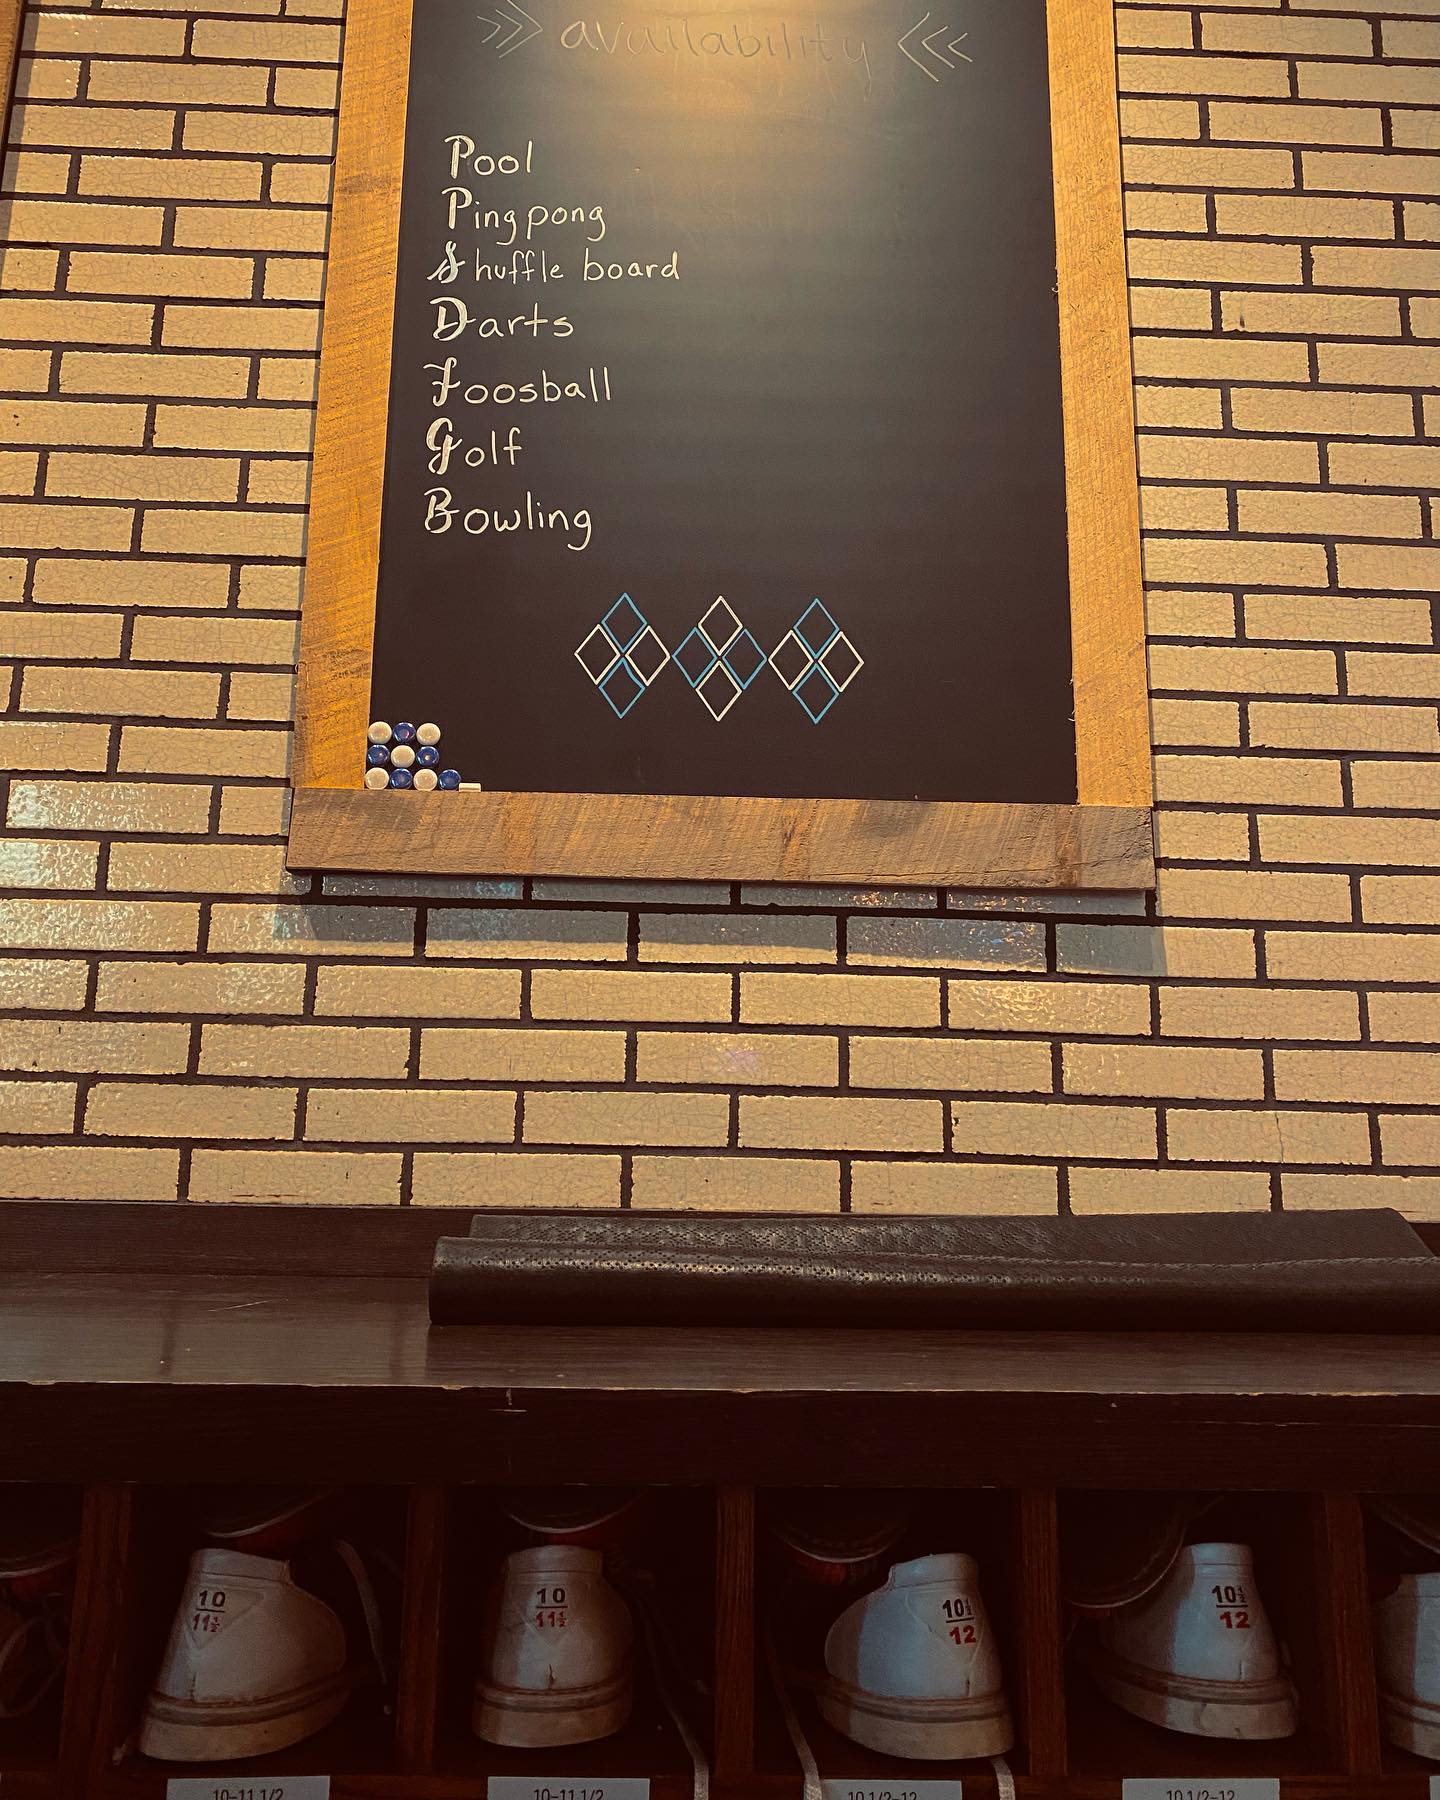 >> availability <<<
Pool
Ping pong
Shuffle board
Darts
Foosball
Golf
Bowling
10
11 1/2
10
11 1/2
10 1/2
12
10 1/2
12
10-11 1/2
10-11 1/2
10 1/2-12
10 1/2-12